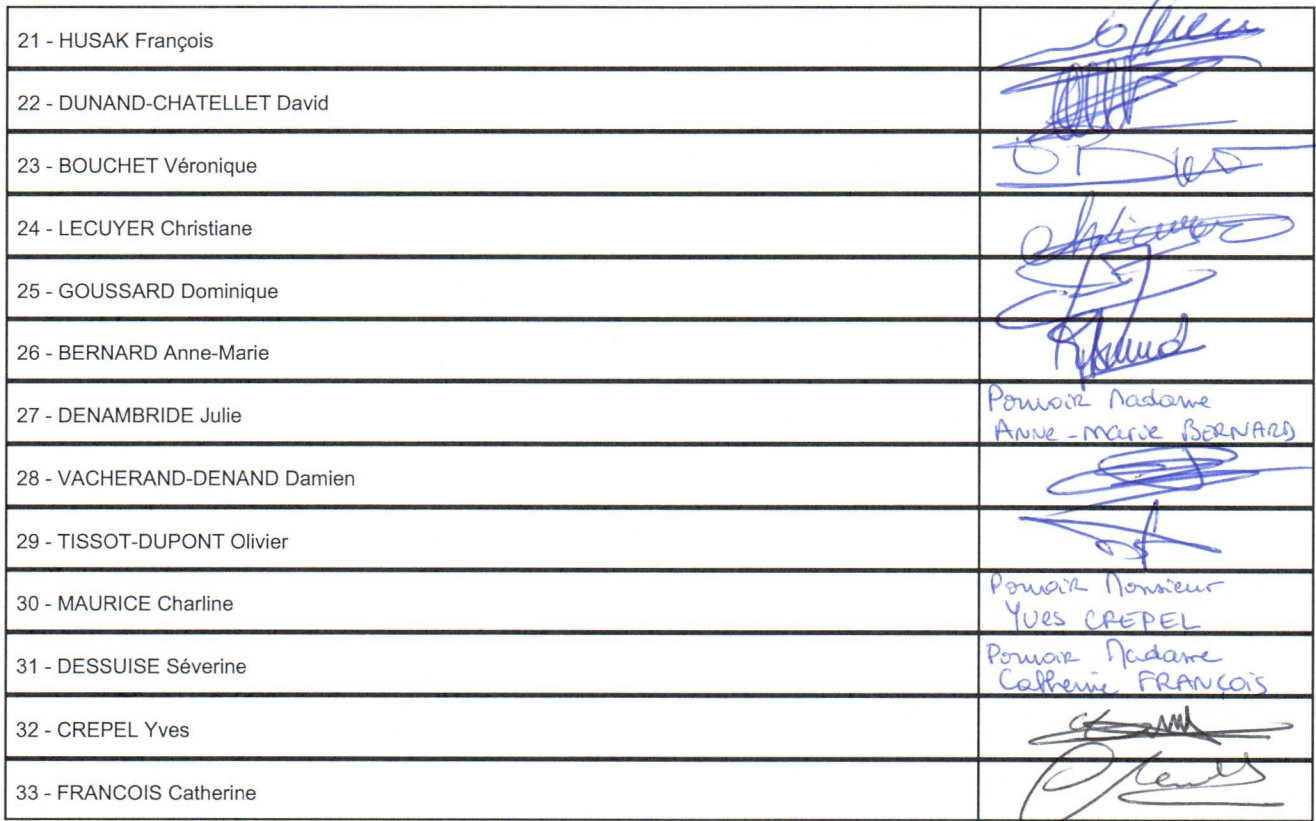 21 - HUSAK François
22 - DUNAND-CHATELLET David
23 - BOUCHET Véronique
24 - LECUYER Christiane
25 - GOUSSARD Dominique
26 - BERNARD Anne-Marie
27 - DENAMBRIDE Julie
Pouvoir Madame
Anne-Marie BERNARD
28 - VACHERAND-DENAND Damien
29 - TISSOT-DUPONT Olivier
30 - MAURICE Charline
Pouvoir Monsieur
Yves CREPEL
31 - DESSUISE Séverine
Pouvoir Madame
Catherine FRANÇOIS
32 - CREPEL Yves
33 - FRANCOIS Catherine